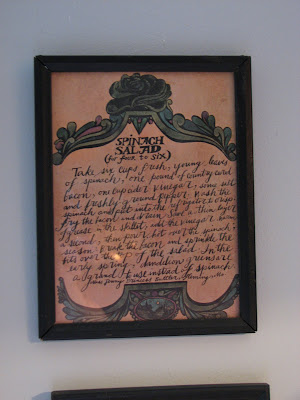 SPINACH
SALAD
(for four to six)
Take six cups fresh, young leaves
of spinach, one pound of country cured
bacon, one cup cider vinegar, some salt
and freshly ground pepper. Wash the
spinach and put into the refrigerator to crisp.
Fry the bacon and drain. Leave a thin layer
of grease in the skillet, add the vinegar, warm
, then pour hot onto the spinach,
season. Break the bacon and sprinkle the
bits over the top of the salad. In the
early spring, dandelion greens are
grand to use instead of spinach
from